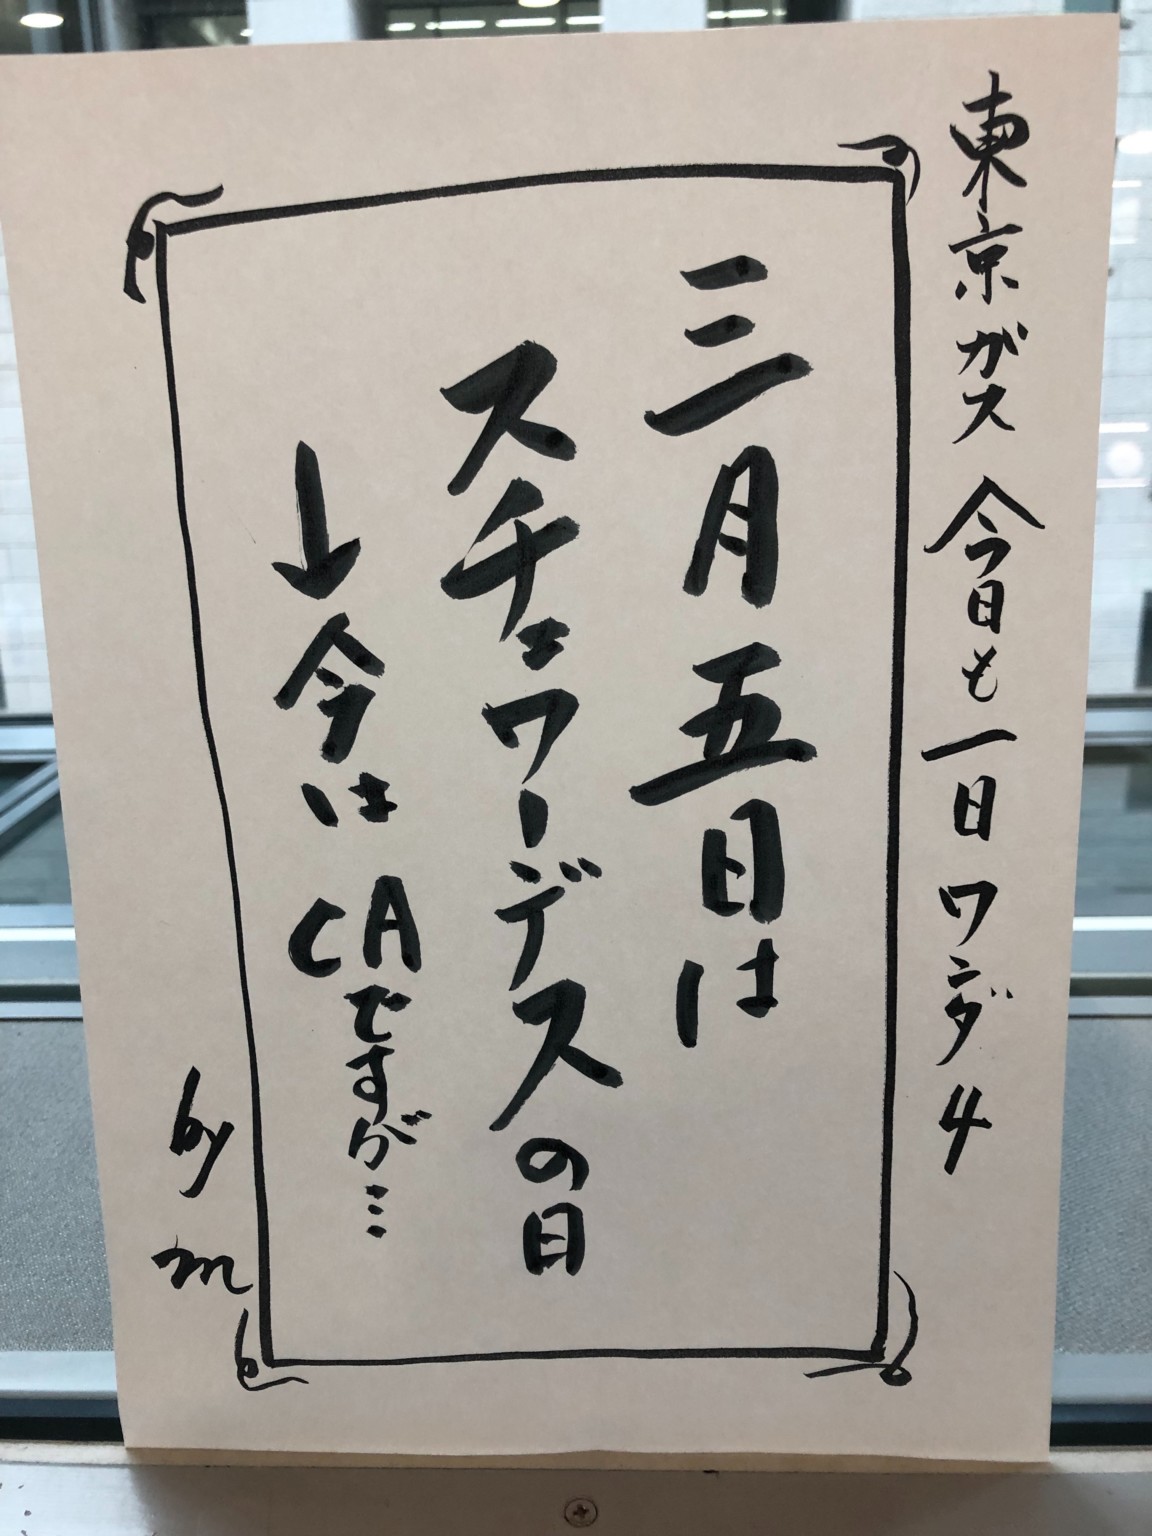 東京ガス 今日も一日 ワンダ4
三月五日は
スチュワーデスの日
↓今は CAですが…
by m